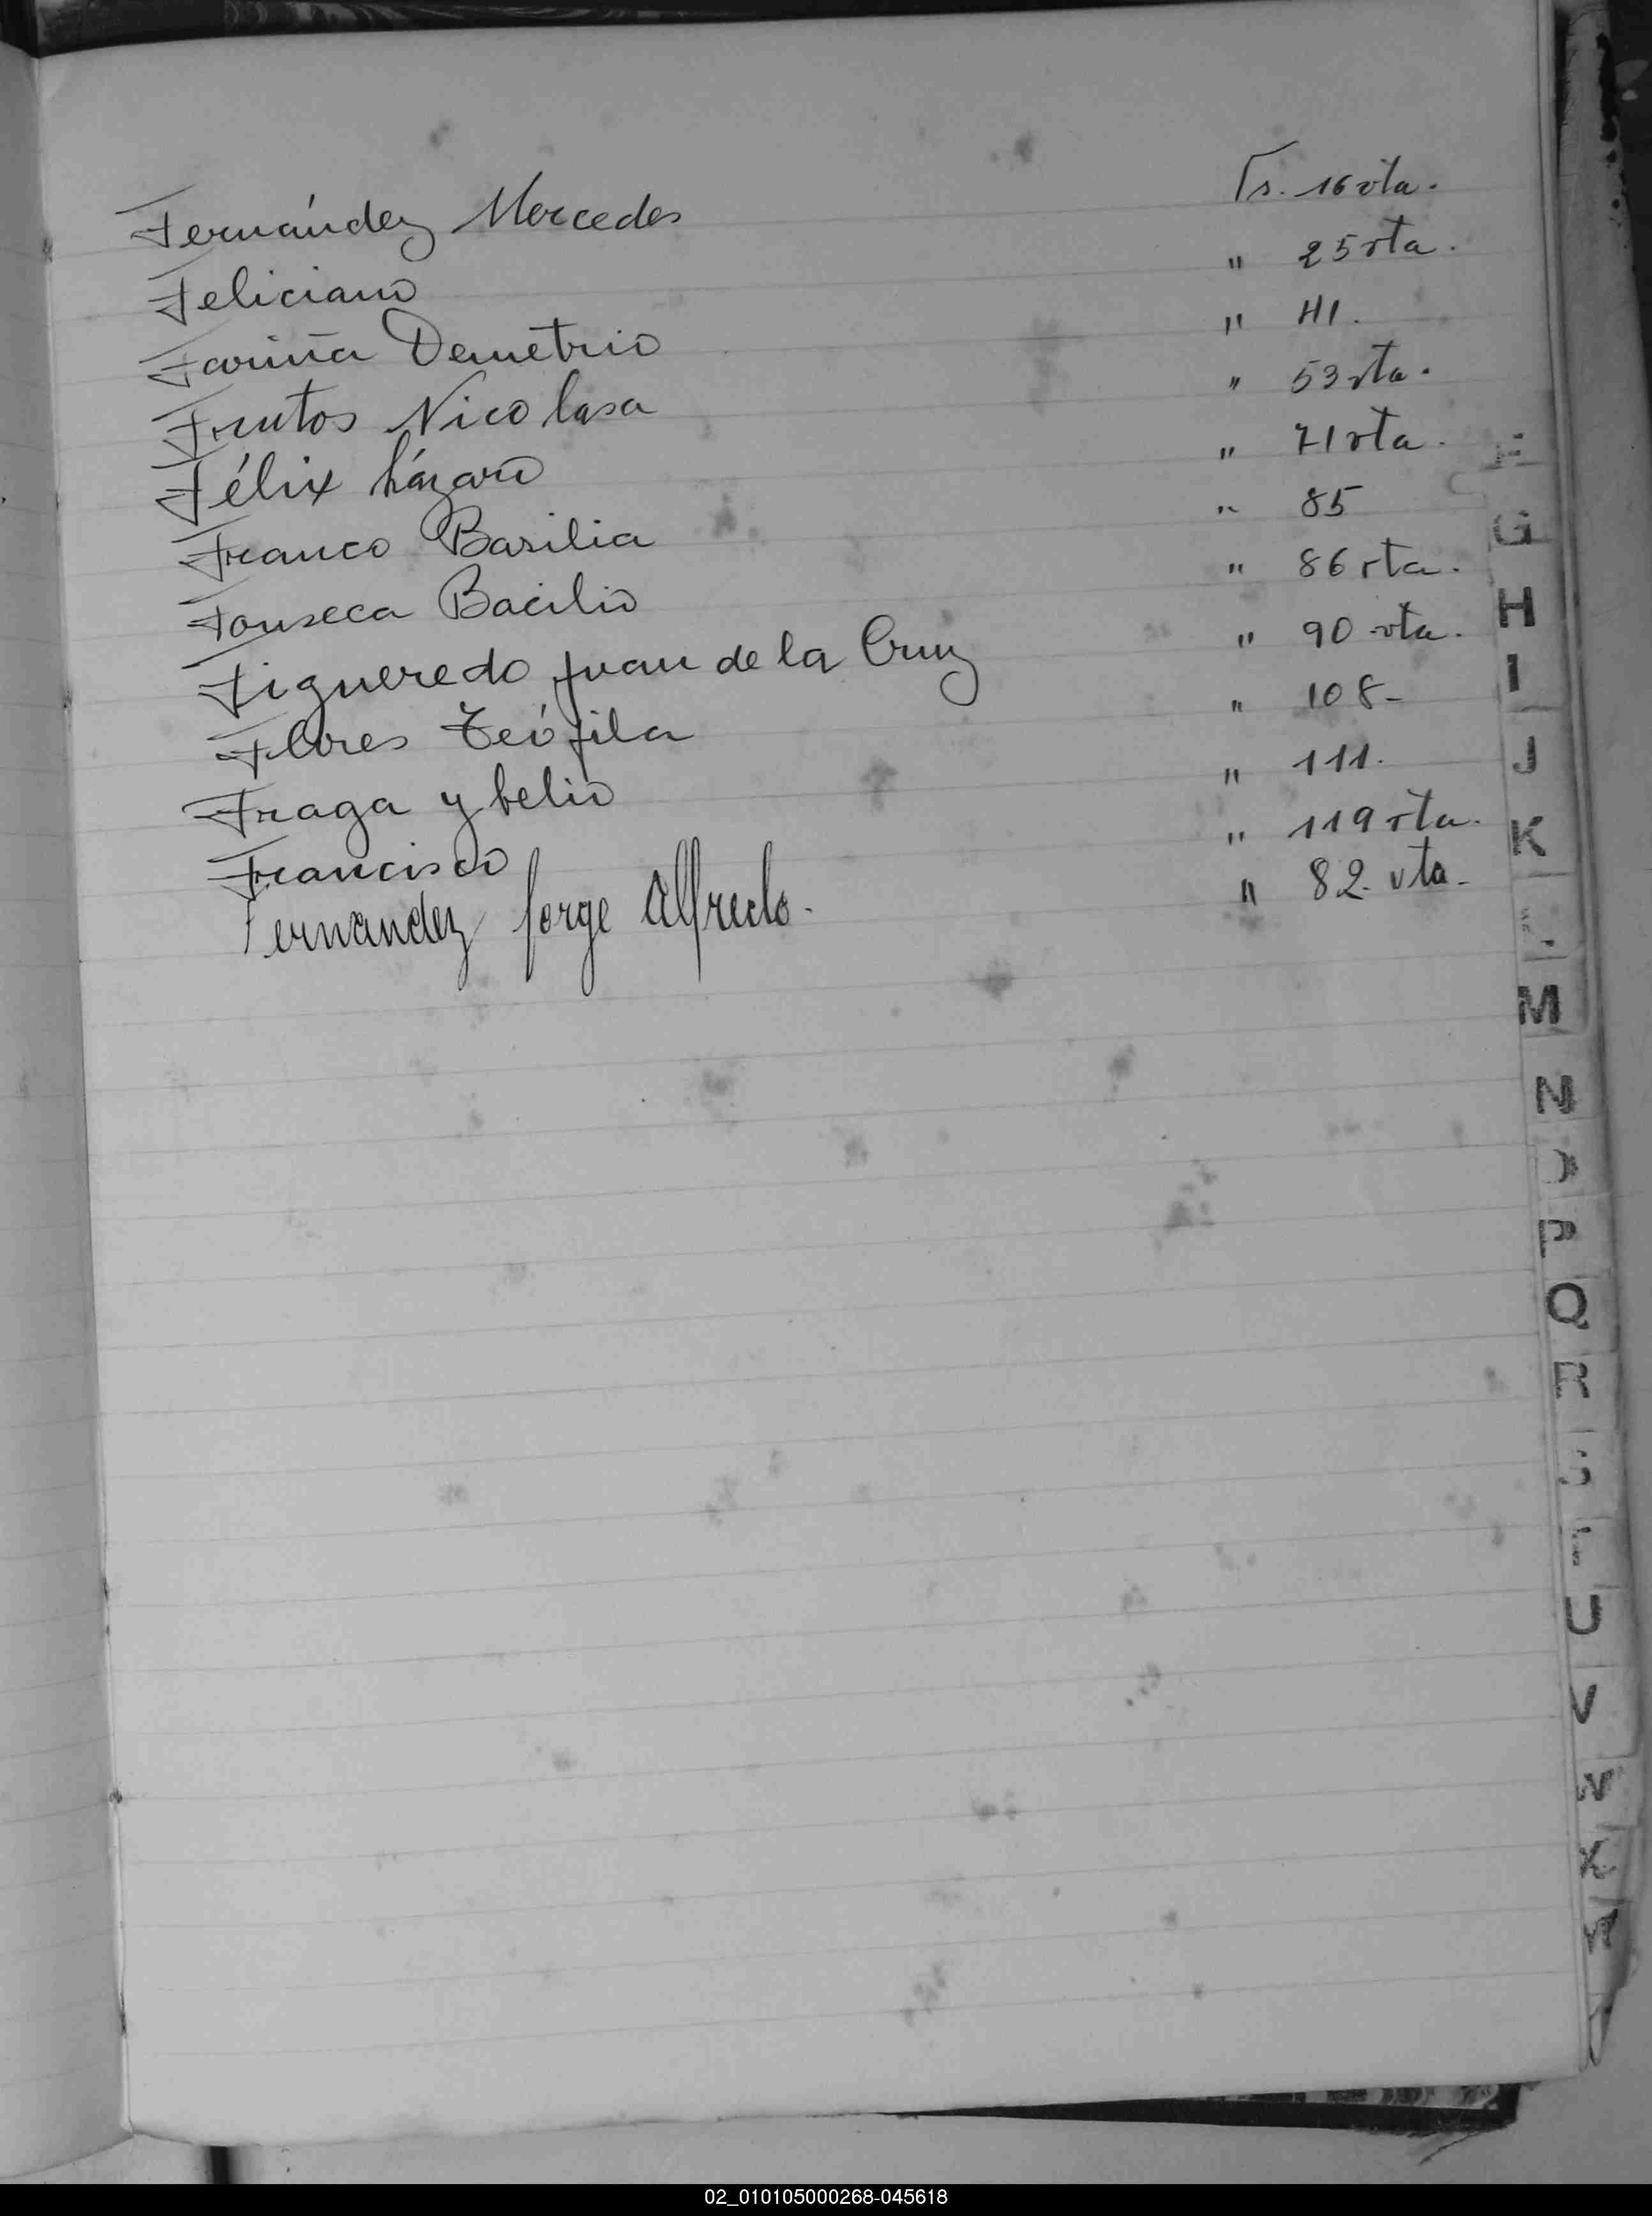 Fernández Mercedes Fs. 16 vta.
Feliciano " 25 vta.
Fariña Demetrio " 41.
Frutos Nicolasa " 53 vta.
Félix Lázaro " 71 vta.
Franco Basilia " 85
Fonseca Bacilio " 86 vta.
Figueredo Juan de la Cruz " 90 vta.
Flores Teófila " 108-
Fraga y " 111.
Francisco " 119 vta.
Fernandez Jorge Alfredo. " 82. vta.
F
G
H
I
J
K
M
N
O
P
Q
R
S
T
U
V
W
X
02_010105000268-045618